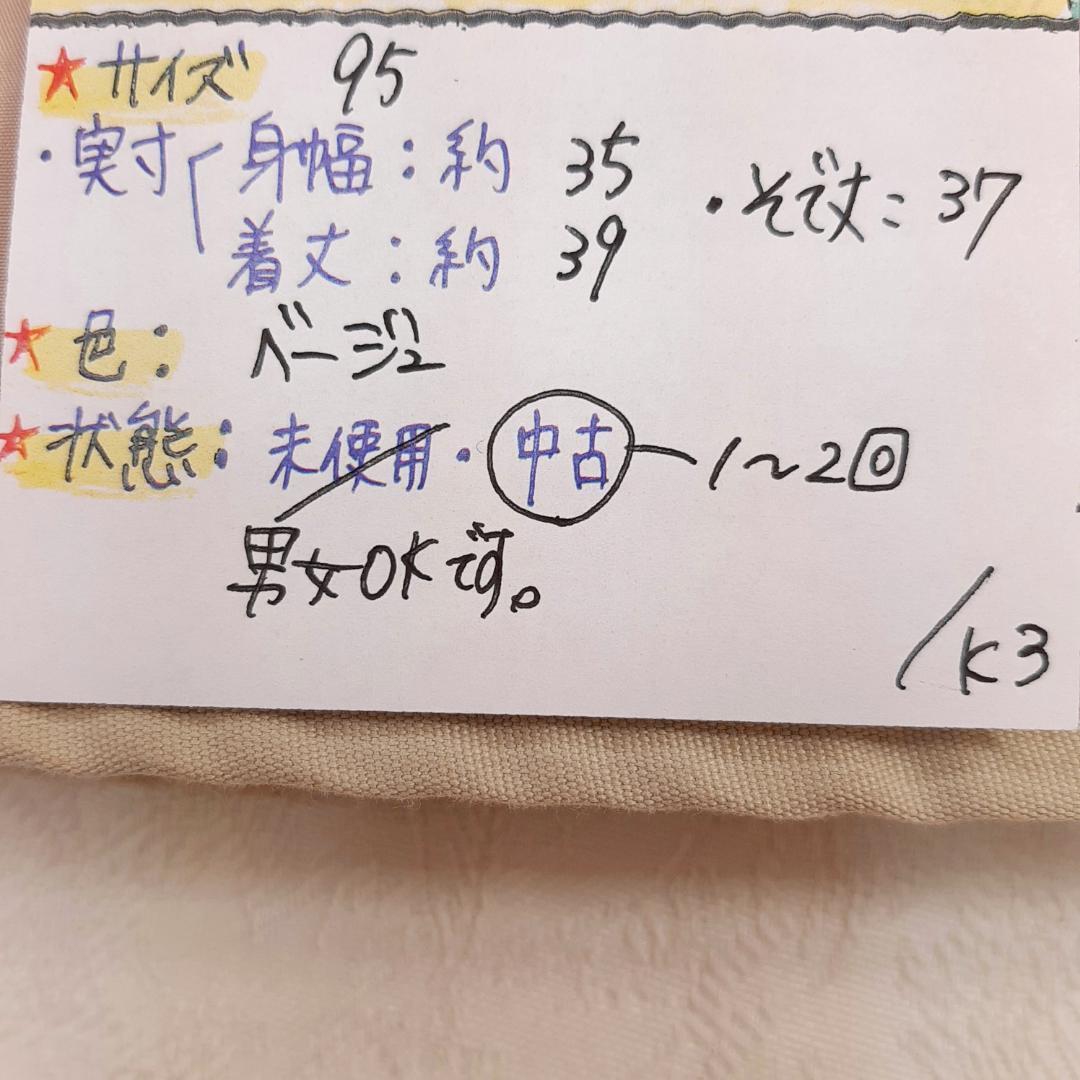 ★サイズ 95
・実寸 身幅：約 35 ・そで丈：37
着丈：約 39
★色：ベージュ
★状態：未使用・中古ー1～2回
男女OKです。
/K3